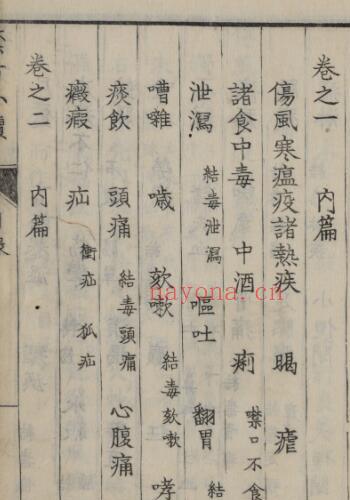 卷之一 內篇
傷風寒瘟疫諸熱疾 暍 瘧
諸食中毒 中酒 痢 噤口不食
泄瀉 結毒泄瀉 嘔吐 翻胃 結
嘈雜 噦 欬嗽 結毒欬嗽 哮
痰飲 頭痛 結毒頭痛 心腹痛
癥瘕不仁 疝 衝疝 狐疝
卷之二 內篇
nayona.cn